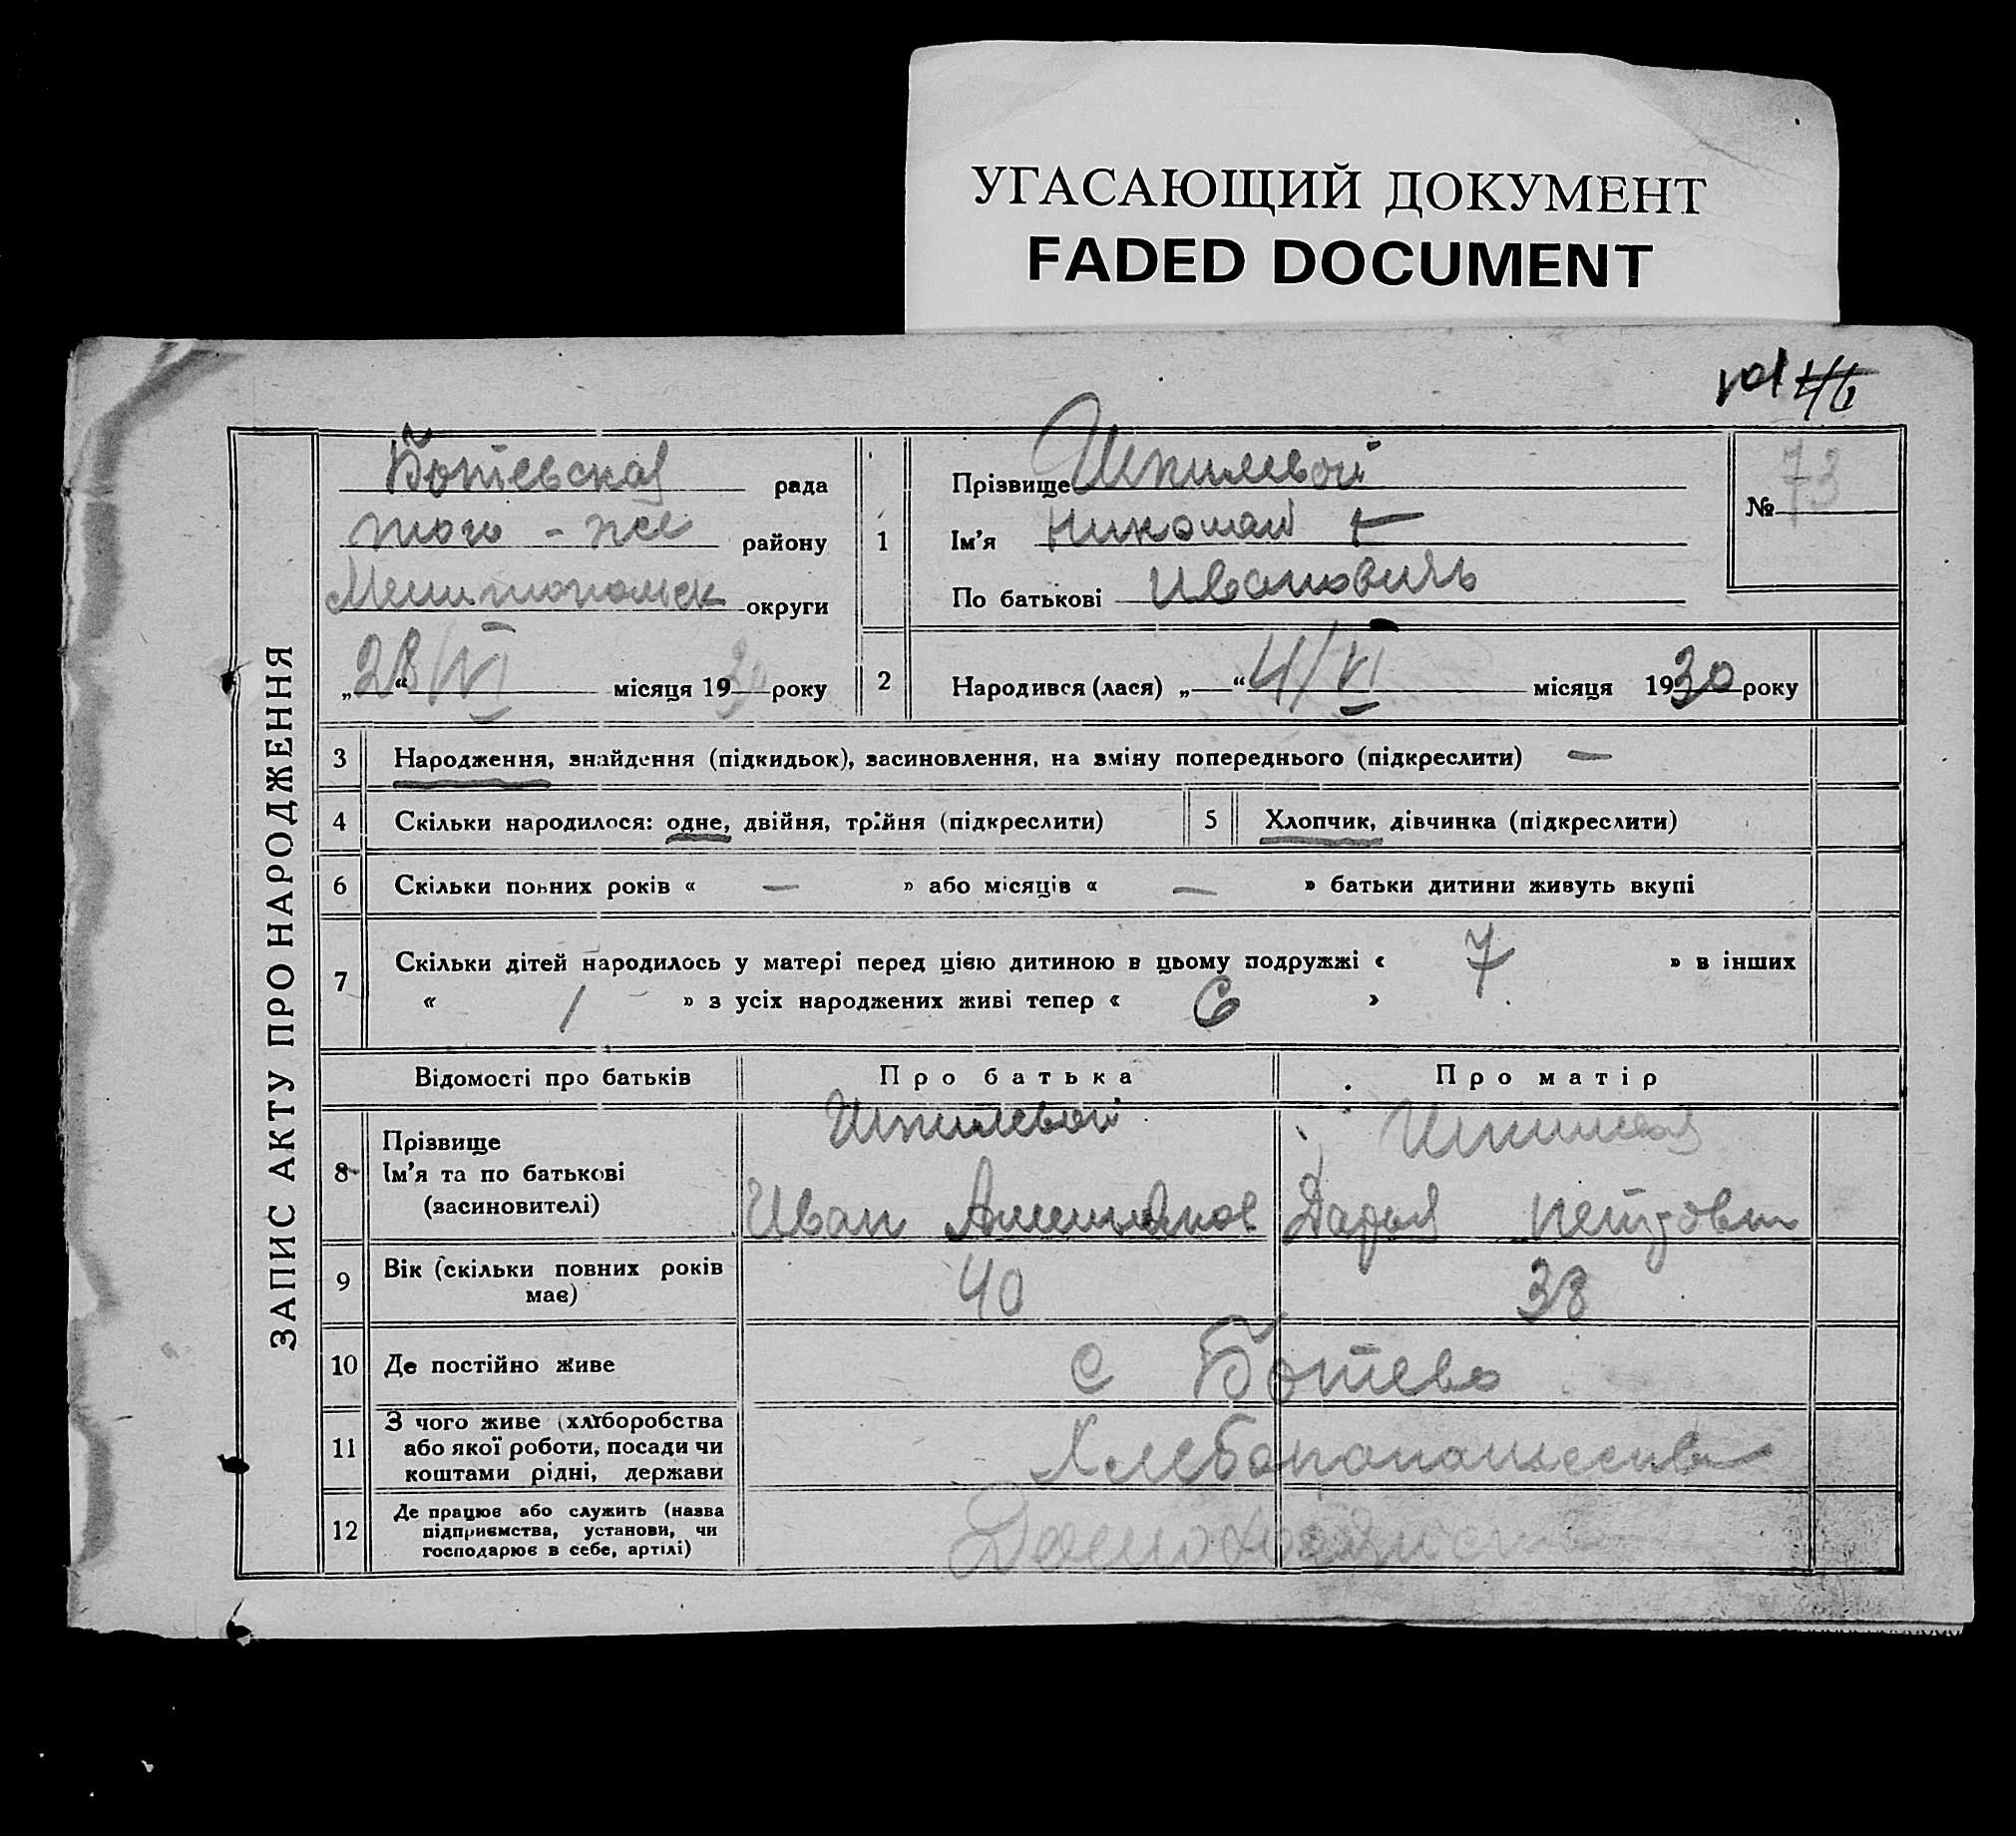 УГАСАЮЩИЙ ДОКУМЕНТ
FADED DOCUMENT
46
ЗАПИС АКТУ ПРО НАРОДЖЕННЯ
Ботевская рада
того - же району
Мелитопольск округи
„28“ VI місяця 1930 року
1
Прізвище Шпилевой
Ім'я Николай
По батькові Иванович
№ 73
2 Народився (лася) „ “ 4/VI місяця 1930 року
3 Народження, знайдення (підкидьок), засиновлення, на зміну попереднього (підкреслити) —
4 Скільки народилося: одне, двійня, трійня (підкреслити)
5 Хлопчик, дівчинка (підкреслити)
6 Скільки повних років « — » або місяців « — » батьки дитини живуть вкупі
7 Скільки дітей народилось у матері перед цією дитиною в цьому подружжі « 7 » в інших
« / » з усіх народжених живі тепер « 6 »
Відомості про батьків Про батька Про матір
8 Прізвище
Ім'я та по батькові
(засиновителі)
Шпилевой
Иван
Дарья Петровн
9 Вік (скільки повних років
має)
40 38
10 Де постійно живе с Ботево
11 З чого живе (хліборобства
або якої роботи, посади чи
коштами рідні, держави
Хлебопопашество
12 Де працює або служить (назва
підприємства, установи, чи
господарює в себе, артілі)